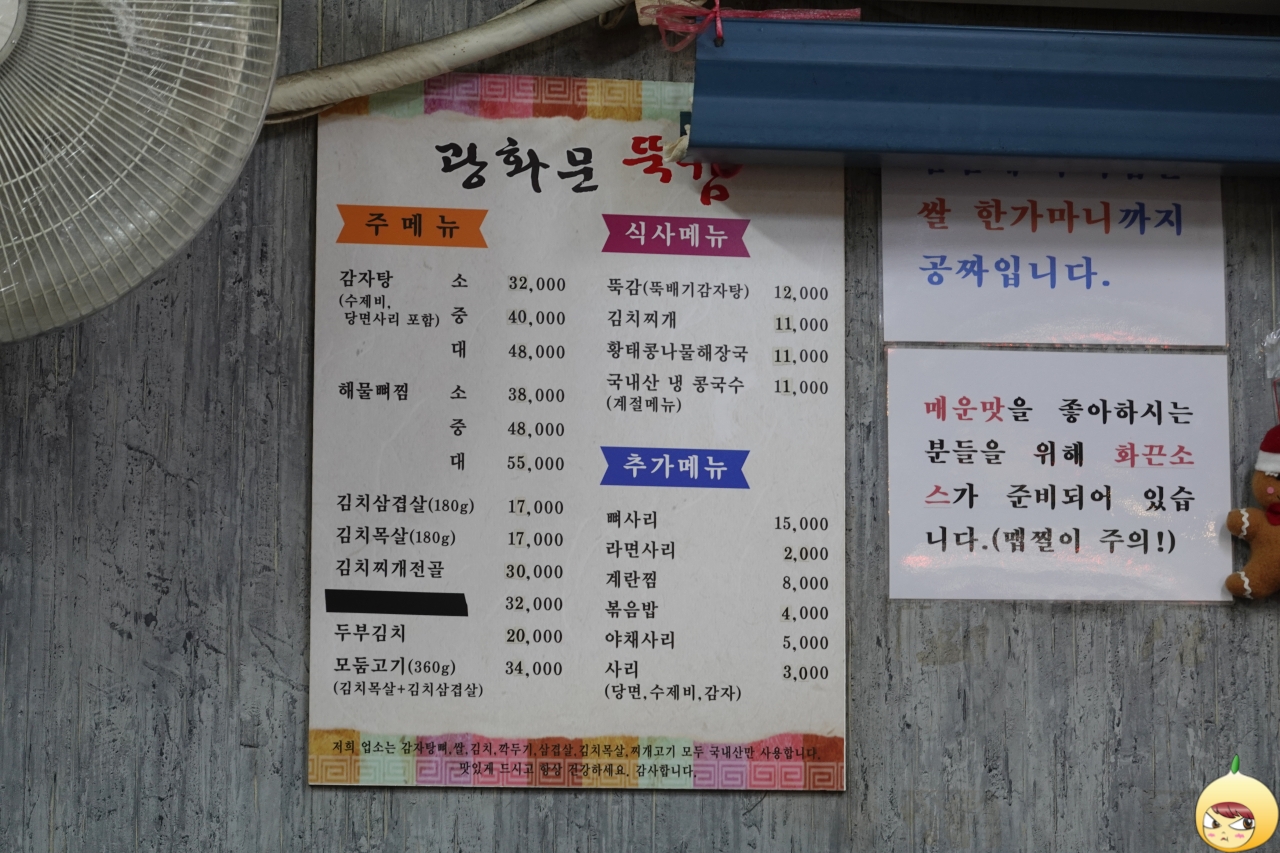 광화문 뚝감
주메뉴
감자탕 소 32,000
(수제비,
당면사리 포함) 중 40,000
대 48,000
해물뼈찜 소 38,000
중 48,000
대 55,000
김치삼겹살(180g) 17,000
김치목살(180g) 17,000
김치찌개전골 30,000
32,000
두부김치 20,000
모둠고기(360g) 34,000
(김치목살+김치삼겹살)
식사메뉴
뚝감(뚝배기감자탕) 12,000
김치찌개 11,000
황태콩나물해장국 11,000
국내산 냉 콩국수 11,000
(계절메뉴)
추가메뉴
뼈사리 15,000
라면사리 2,000
계란찜 8,000
볶음밥 4,000
야채사리 5,000
사리 3,000
(당면,수제비,감자)
저희 업소는 감자탕뼈,쌀,김치,깍두기,삼겹살,김치목살,찌개고기 모두 국내산만 사용합니다.
맛있게 드시고 항상 건강하세요. 감사합니다.
쌀 한가마니까지
공짜입니다.
매운맛을 좋아하시는
분들을 위해 화끈소
스가 준비되어 있습
니다.(맵찔이 주의!)